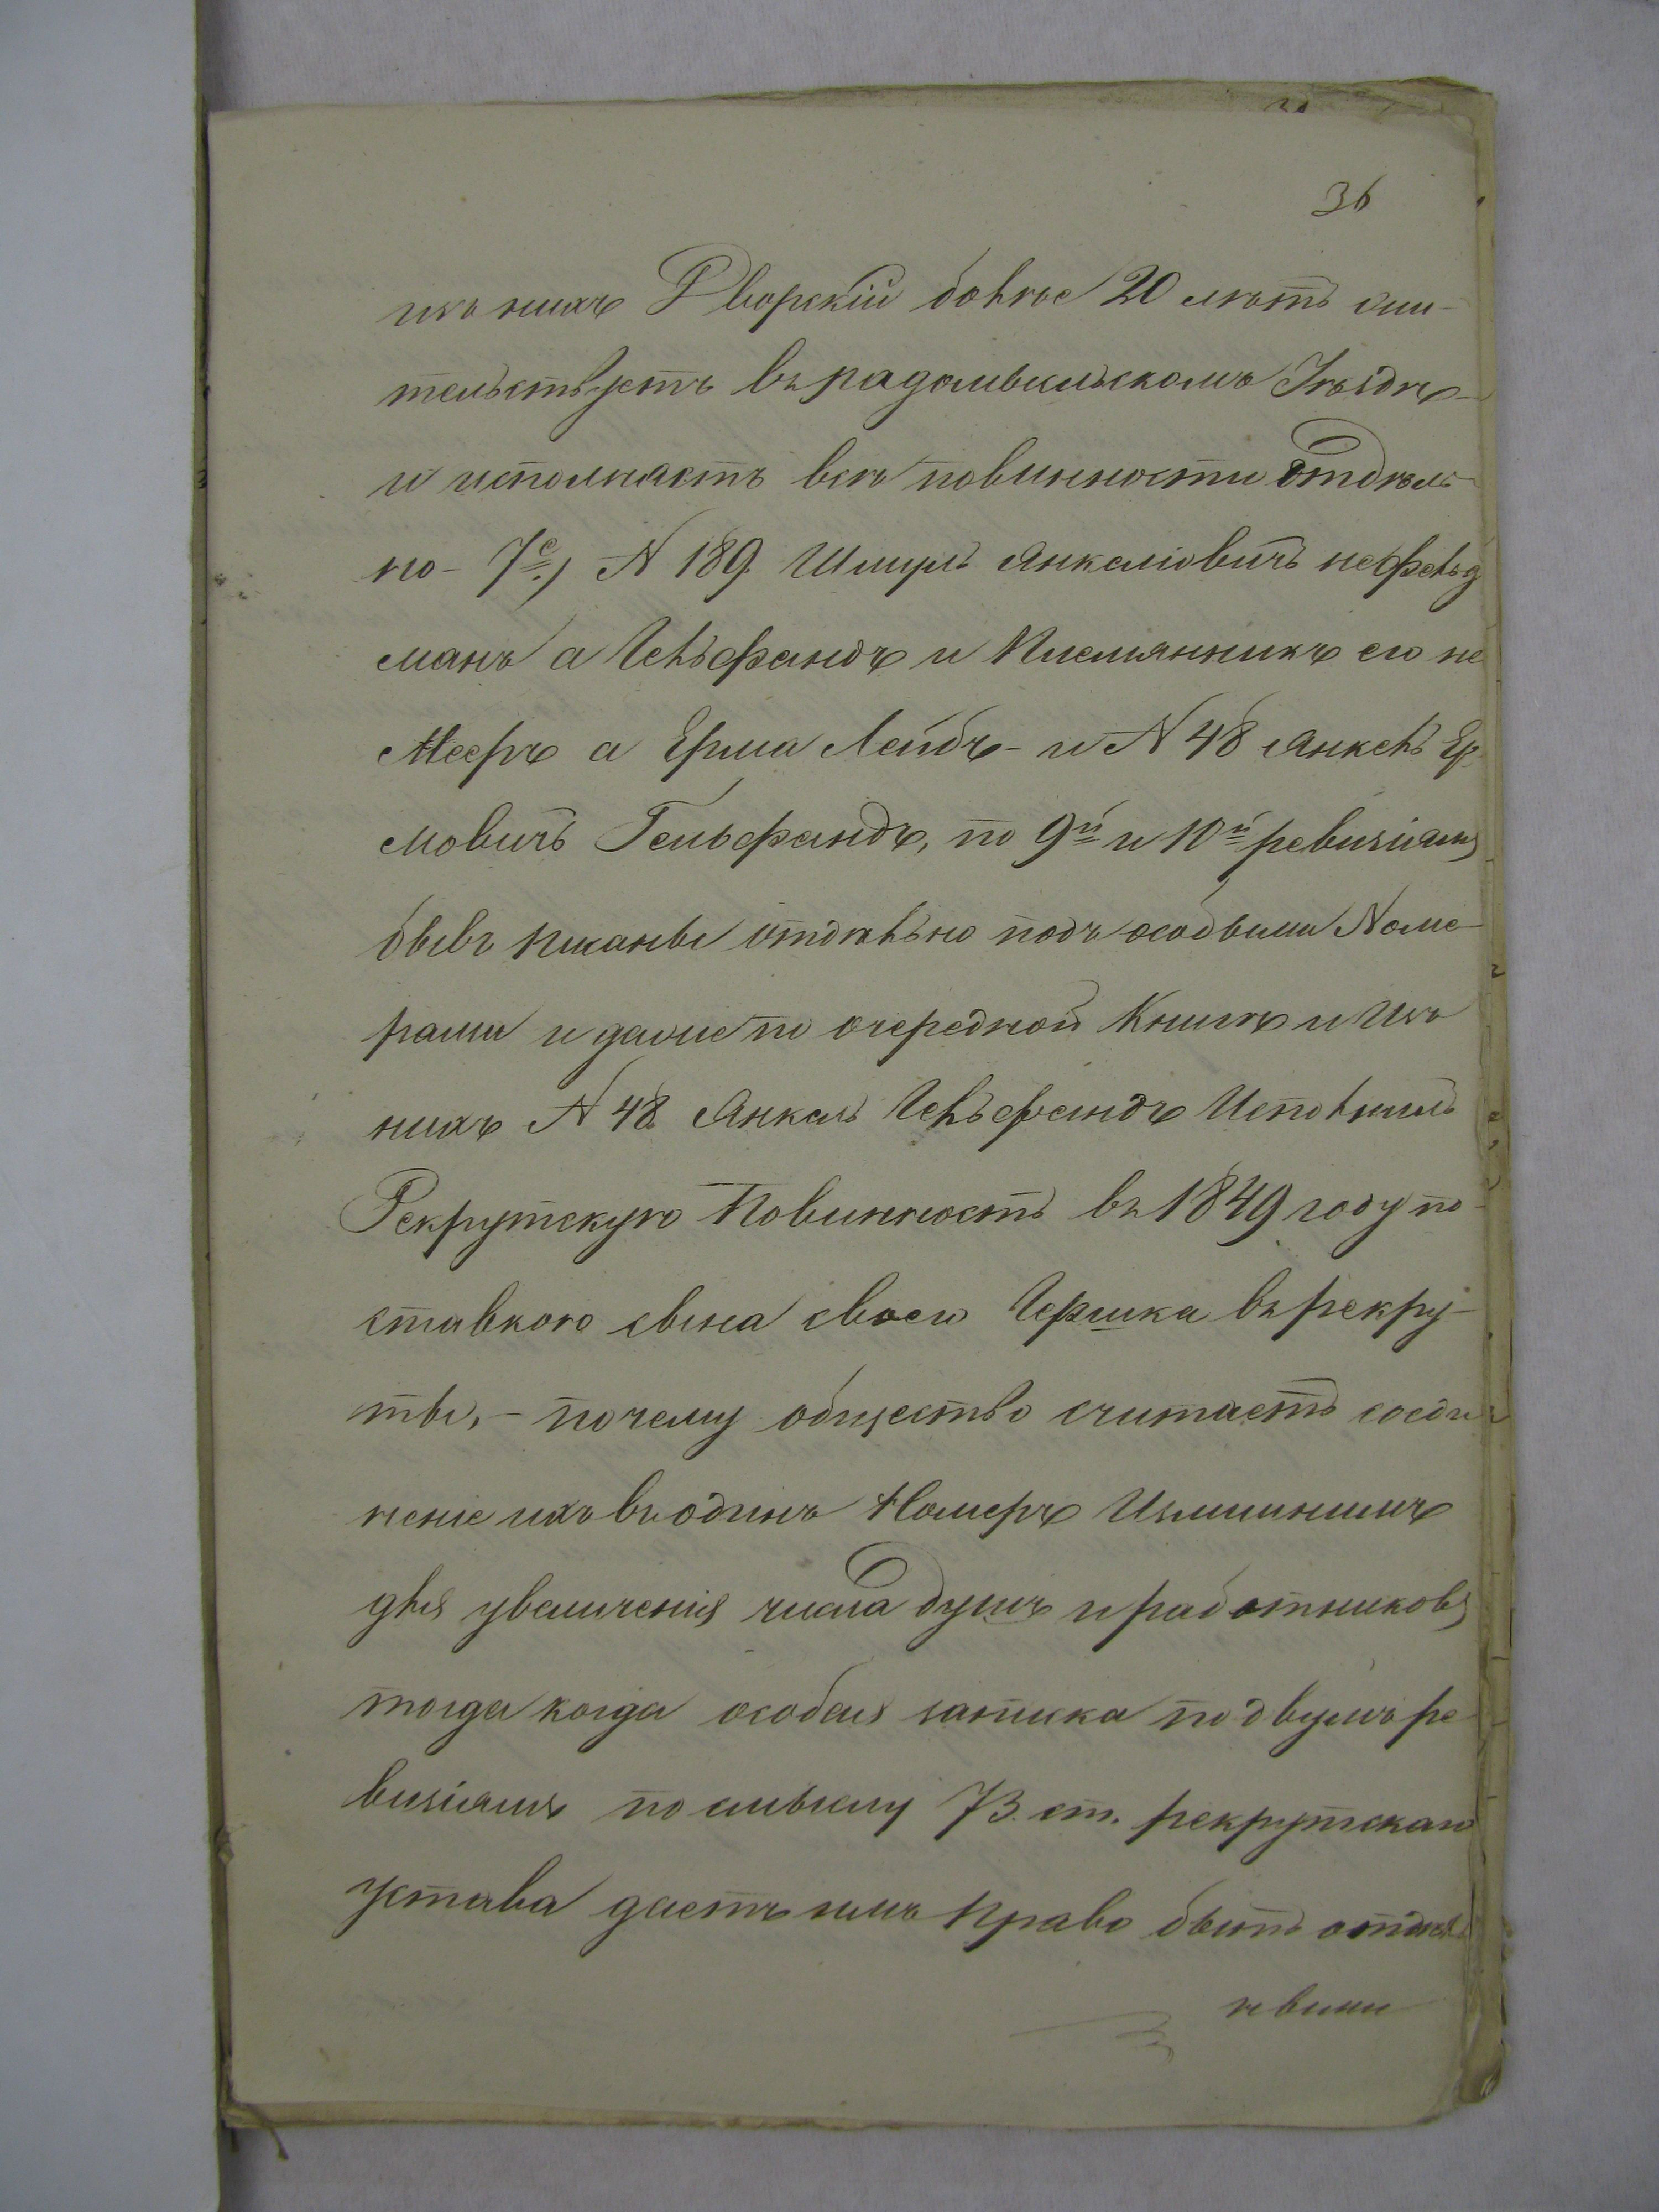 36
изъ нихъ Дворскій болѣе 20 лѣтъ жи-
тельствуетъ въ радомысльскомъ Уѣздѣ
и исполняетъ всѣ повинности отдѣль-
но – 7е.) N 189 Шмуль Янкеліовичъ не Фельд
манъ а Гельфандъ и Племянникъ его не
Мееръ а Ерма Лейбъ – и N 48 Янкель Ер
мовичъ Гельфандъ, по 9й и 10й ревизіямъ
бывъ писаны отдѣльно подъ особыми Номе-
рами и далѣе по очередной Книгѣ и Изъ
нихъ N 48 Янкель Гельфандъ Исполнилъ
Рекрутскую Повинность въ 1849 году по-
ставкою сына своего Гершка въ рекру-
ты, – почему общество считаетъ соеди
неніе ихъ въ одинъ Номеръ Излишнимъ
для увеличенія числа душъ и работниковъ
тогда когда особая записка по двумъ ре
визіямъ по смыслу 73. ст. рекрутскаго
Устава даетъ имъ Право быть отдѣль
ными